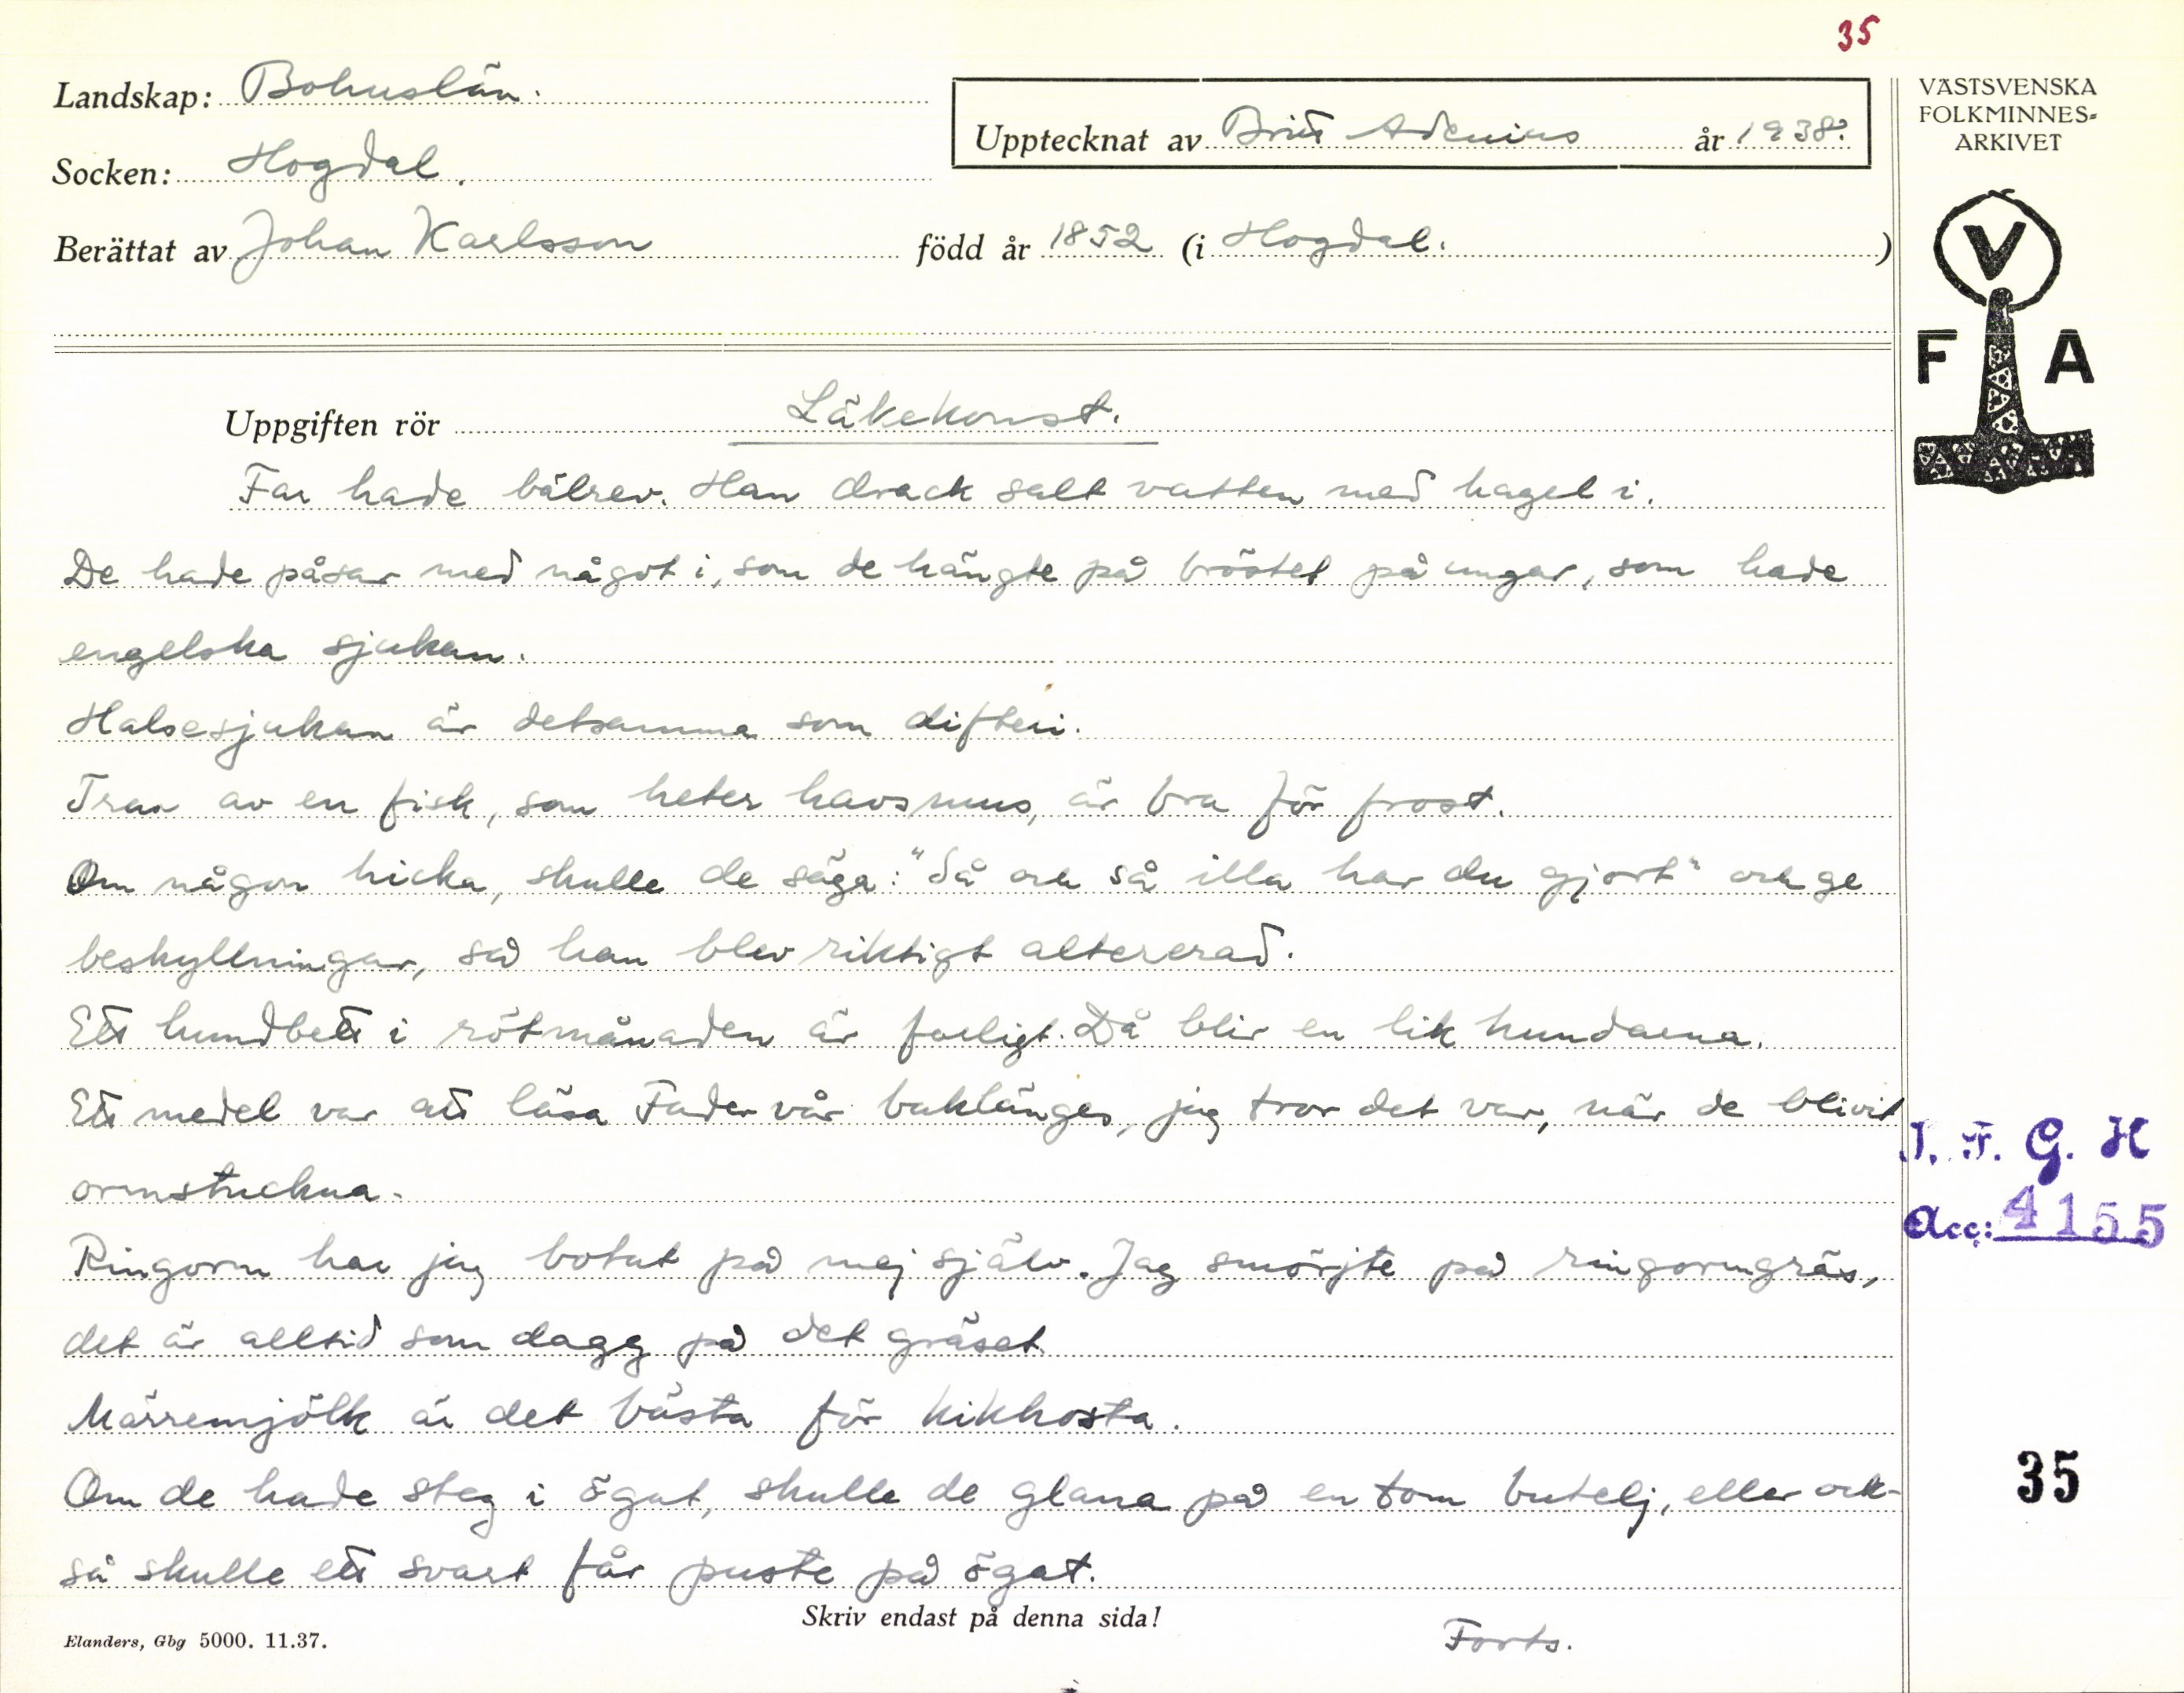 35
Landskap: Bohuslän.
Upptecknat av Britt Adenius år 1938.
VÄSTSVENSKA
FOLKMINNES-
ARKIVET
Socken: Hogdal.
Berättat av Johan Karlsson född år 1852 (i Hogdal. )
V
F A
Uppgiften rör Läkekonst.
Far hade bålrev. Han drack salt vatten med hagel i.
De hade påsar med något i, som de hängte på bröstet på ungar, som hade
engelska sjukan.
Halsesjukan är detsamma som difteri.
Tran av en fisk, som heter havsmus, är bra för frost.
Om någon hicka, skulle de säga: "Så och så illa har du gjort" och ge
beskyllningar, så han blev riktigt altererad.
Ett hundbett i rötmånaden är farligt. Då blir en lik hundarna.
Ett medel var att läsa Fader vår baklänges, jag tror det var, när de blivit
ormstuckna.
I. F. G. H
Acc: 4155
Ringorm har jag botat på mej själv. Jag smörjte på ringormgräs,
det är alltid som dagg på det gräset.
Märremjölk är det bästa för kikhosta.
Om de hade steg i ögat, skulle de glana på en tom butelj, eller ock-
så skulle ett svart får puste på ögat.
35
Skriv endast på denna sida!
Elanders, Gbg 5000. 11.37.
Forts.